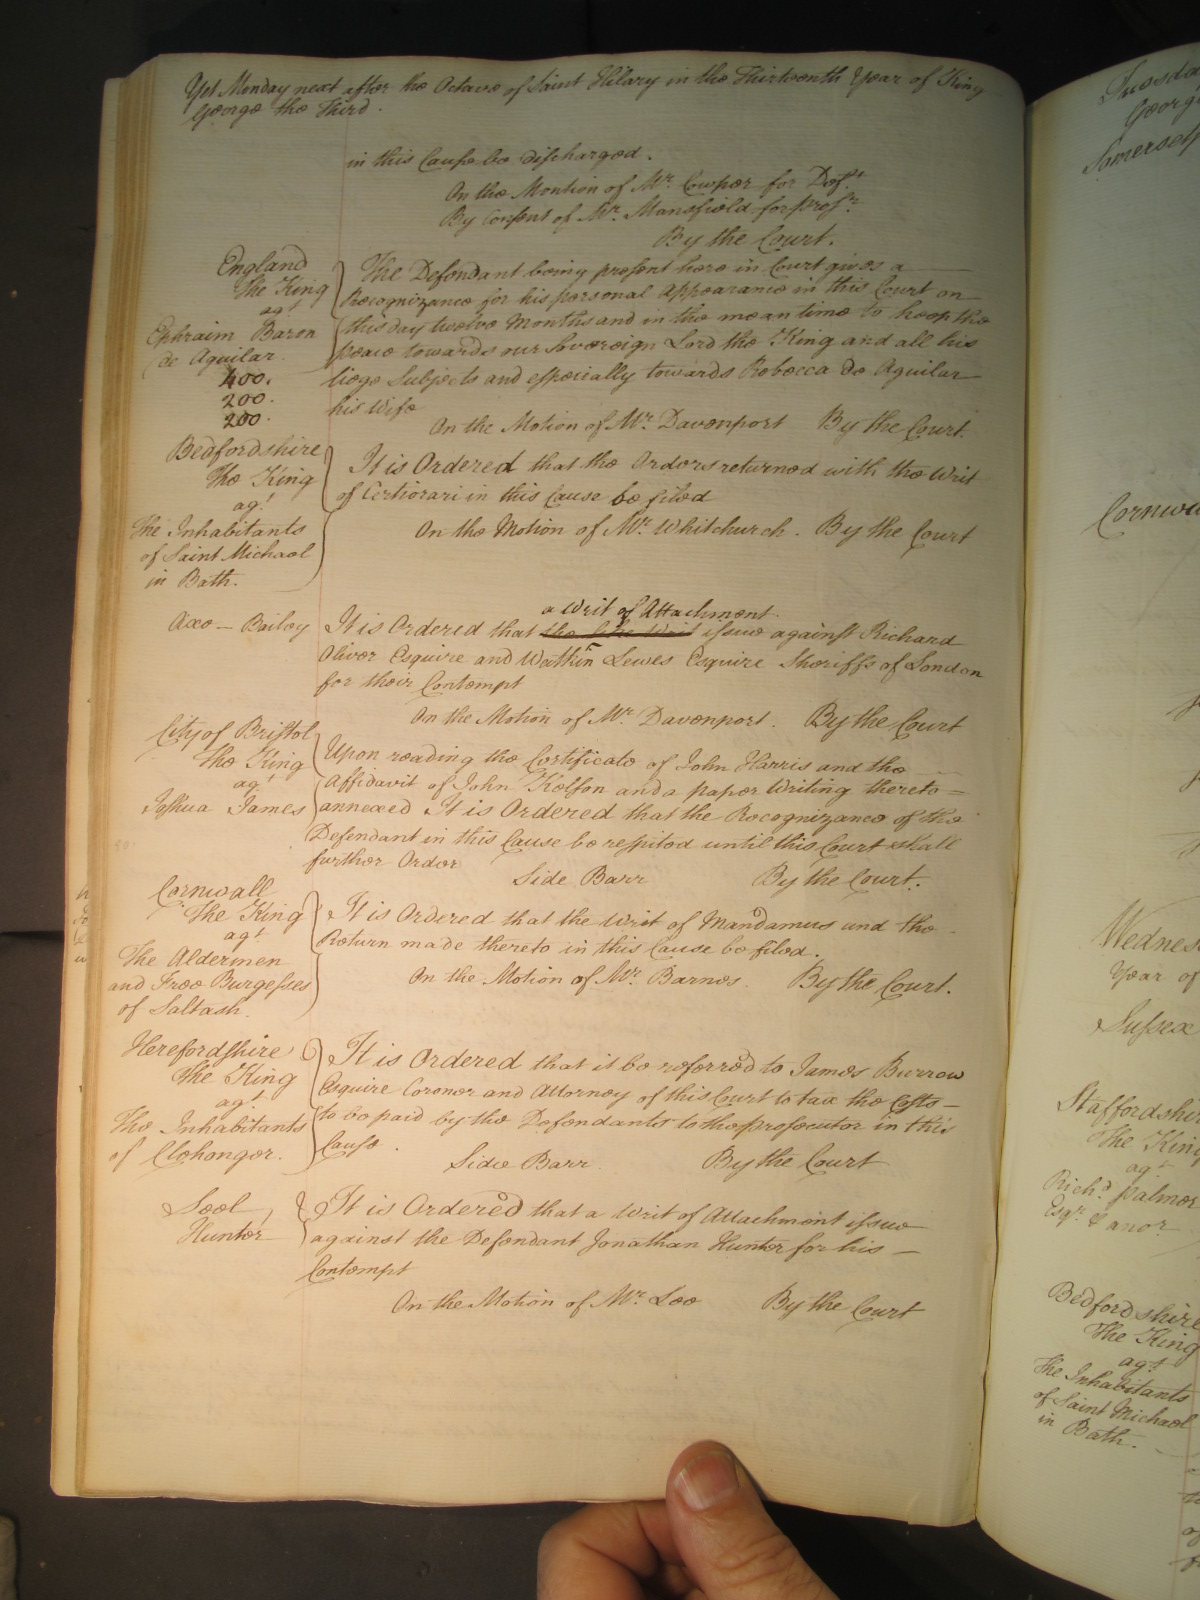 Yet Monday next after the Octave of Saint Hilary in the Thirteenth Year of King
George the Third.
in this Cause be discharged.
On the Montion of Mr. Cowper for Deft.
By Consent of Mr. Mansfield for prosr.
By the Court.
England
The King
agt
Ephraim Baron
de Aguilar.
400.
200.
200.
The Defendant being present here in Court gives a
Recognizance for his personal Appearance in this Court on
this day twelve Months and in the mean time to keep the
peace towards our Sovereign Lord the King and all his
liege Subjects and especially towards Rebecca De Aguilar
his Wife
On the Motion of Mr. Davenport By the Court.
Bedfordshire
The King
agt
The Inhabitants
of Saint Michael
in Bath.
It is Ordered that the Orders returned with the Writ
of Certiorari in this Cause be filed
On the Motion of Mr. Whitchurch. By the Court
Axe – Bailey
a Writ of Attachment
It is Ordered that issue against Richard
Oliver Esquire and Watkin Lewes Esquire Sheriffs of London
for their Contempt
On the Motion of Mr. Davenport. By the Court
City of Bristol
The King
agt
Joshua James
Upon reading the Certificate of John Harris and the
Affidavit of John Kelson and a paper Writing thereto =
annexed It is Ordered that the Recognizance of the
Defendant in this Cause be respited until this Court shall
further Order
Side Barr By the Court.
Cornwall
The King
agt
The Aldermen
and Free Burgesses
of Saltash.
It is Ordered that the Writ of Mandamus and the
Return made thereto in this Cause be filed.
On the Motion of Mr. Barnes. By the Court.
Herefordshire
The King
agt
The Inhabitants
of Clehonger.
It is Ordered that it be referred to James Burrow
Esquire Coroner and Attorney of this Court to tax the Costs –
to be paid by the Defendants to the prosecutor in this
Cause.
Side Barr By the Court
Seel,
Hunter
It is Ordered that a Writ of Attachment issue
against the Defendant Jonathan Hunter for his –
Contempt
On the Motion of Mr. Lee By the Court
Somerset
Wednes
Year of
Sussex
Staffordshire
The King
agt
Richd. Palmer
Esqr. & anor
Bedfordshire
The King
agt
The Inhabitants
of Saint Michael
in Bath.